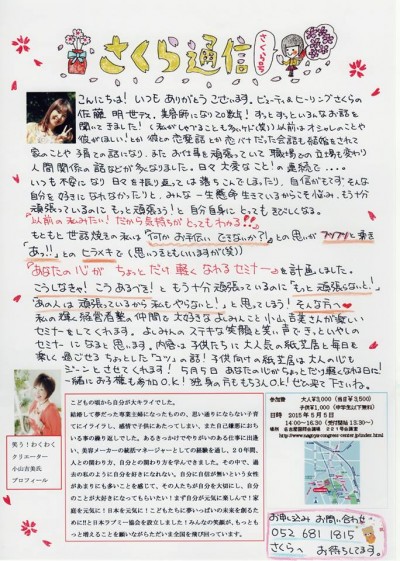 さくら通信
さくら号
こんにちは！いつもありがとうございます。ビューティ&ヒーリングさくらの
佐藤 明世です。美容師になり20数年！ずっとずっといろんなお話を
聞いてきました！（私がしゃべることも多いけど（笑））以前はオシャレのことや
彼がほしい！とか彼との恋愛話とか恋バナだった会話も結婚をされて
家のことや子育ての話になり、またお仕事を頑張っていて職場での立場も変わり
人間関係の話などが多くなりました。日々大変なこと！の連続で‥‥。
いつも不安になり日々を振り返っては落ちこんでしまったり、自信がもてず、そんな
自分を好きになれなかったりと、みんな一生懸命生きているからこそ悩み、もう十分
頑張っているのにもっと頑張ろう！と自分自身にとってもきびしくなる。
『以前の私みたい！だから気持がとってもわかる!!』
もともと世話焼きの私は『何かお手伝いできないか？』との思いがフツフツと湧き
『あっ!!』とのヒラメキで（思いつきともいいますが（笑））
『あなたの心がちょっとだけ軽くなれるセミナー』を計画しました。
こうしなきゃ！こうあるべき！ともう十分頑張っているのに『もっと頑張らないと！』
『あの人は頑張っているから私もやらないと！』と思ってしまう！そんな方へ♥
私の輝く経営者塾の仲間で大好きなよしみんこと小山吉美さんが楽しい
セミナーをしてくれます。よしみんのステキな笑顔と笑い声できっといやしの
セミナーになると思います。内容は子供たちに大人気の紙芝居と毎日を
楽しく過ごせるちょっとした“コツ”の話！子供向けの紙芝居は大人の心も
ジーンとさせてくれます！5月5日あなたの心がちょっとだけ軽くなれる日に！
一緒にお子様も参加O.K！独身の方ももちろんO.K！ぜひ来て下さいね。
笑う！わくわく
クリエーター
小山吉美氏
プロフィール
こどもの頃から自分が大キライでした。
結婚して夢だった専業主婦になったものの、思い通りにならない子育
てにイライラし、感情で子供にあたってしまい、また自己嫌悪におち
いる事の繰り返しでした。あるきっかけでやりがいのある仕事に出逢
い、美容メーカーの統括マネージャーとしての経験を通し、20年間、
人との関わり方、自分との関わり方を学んできました。その中で、過
去の私のように自分を好きになれない、自分に自信が無いという女性
があまりにも多いことを感じて、その人たちが自分を大切にし、自分
のことが大好きになってもらいたい！まず自分が元気に楽しんで！家
庭を元気に！日本を元気に！こどもたちに夢いっぱいの未来を創るた
めに!!と日本ラブミー協会を設立しました！みんなの笑顔が、もっとも
っと増えることを願いながらただいま全国を飛び回っています。
参加費 大人¥3,000（当日¥3,500）
子供¥1,000（中学生以下無料）
日時 2015年5月5日
14:00～16:30（受付開始 13:30～）
場所 名古屋国際会議場 221号会議室
http://www.nagoya-congress-center.jp/index.html
お申し込み お問い合わせ
052 681 1815
さくらへ お待ちしてます。